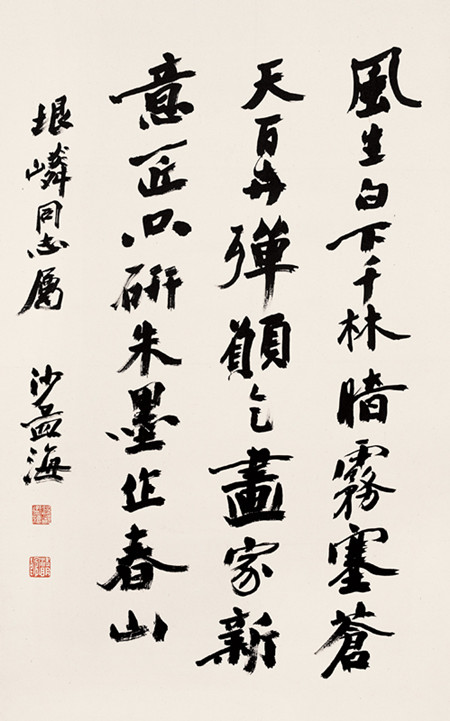 風生白下千林暗霧塞蒼
天百卉殫願乞畫家新
意匠只研朱墨作春山
垠嶙同志屬 沙孟海